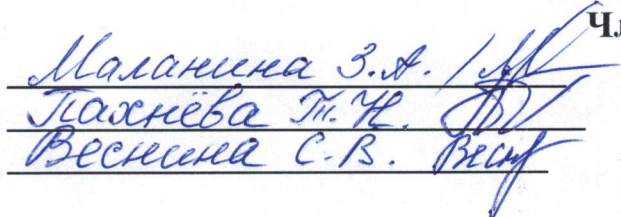 Чл
Маланина З.А. /
Пахнёва Т.Н.
Веснина С.В. Весн